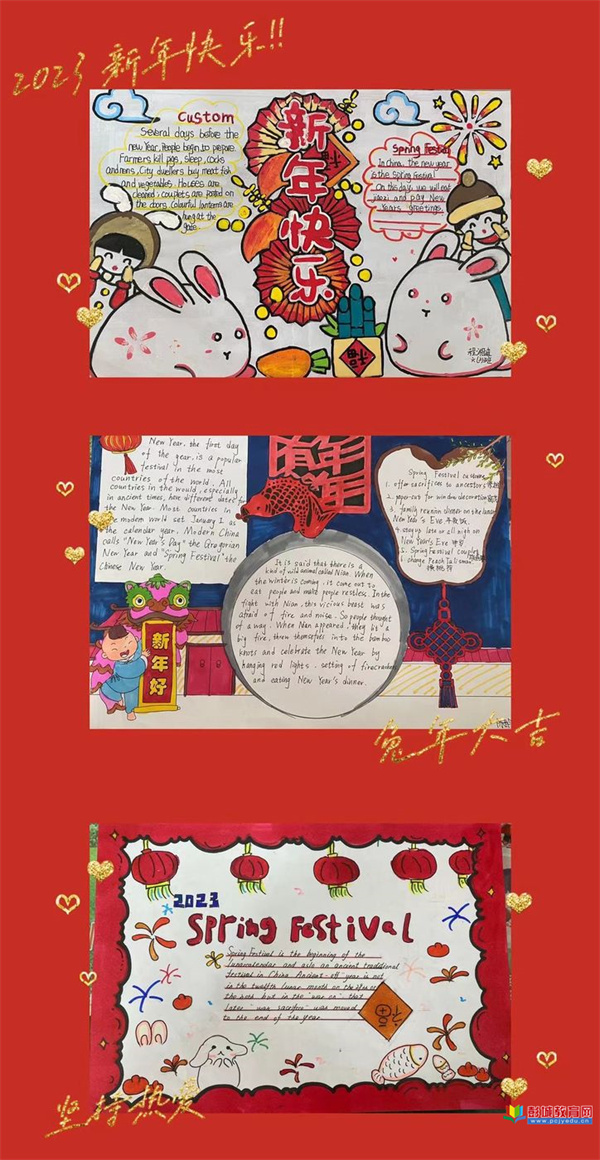 2023 新年快乐!!
Custom
Several days before the
new Year, People begin to prepare.
Farmers kill pigs, sleep, cocks
and hens, City dwellers buy meat fish
and vegetables. Houses are
cleaned; couplets are posted on
the doors. Colourful lanterns are
hung at the
gate.
新年快乐
福
Spring Festival
In China, the new year
is the Spring Festival
On this day, we will eat
jiaozi and pay New
Years greetings.
福
New Year, the first day
of the year, is a popular
festival in the most
countries of the world. All
countries in the would, especially
in ancient times, have different dates for
the New Year. Most countries in
the modern world set January 1 as
the calendar year. Modern China
calls "New Year's Day" the Gregorian
New Year and "Spring Festival" the
Chinese New Year.
新年好
It is said that there is a
kind of wild animal called Nian. When
the winter is coming, it come out to
eat people and make people restless. In the
fight with Nian, this vicious beast was
afraid of fire and noise. So people thought
of a way. When Nian appeared, they lit a
big fire, threw themselves into the bamboo
knots and celebrate the New Year by
hanging red lights, setting of firecrackers
and eating New Year's dinner.
Spring Festival customs
1. offer sacrifices to ancestors
2. paper-cut for window decoration
3. family reunion dinner on the lunar
New Year's Eve 年夜饭
4. stay up late or all nigh on
New Year's Eve 守岁
5. Spring Festival couplet
6. change Peach Talisman
换桃符
兔年大吉
2023
Spring Festival
Spring Festival is the beginning of the
lunar calendar and asla an ancient traditional
festival in China. Ancient "off year" is not
in the twelfth lunar month on the
but in the "wax on" that
Later "wax sacrifice" was moved
to the end of the year
福
坚持热爱
彭城教育网
www.pcjyedu.cn